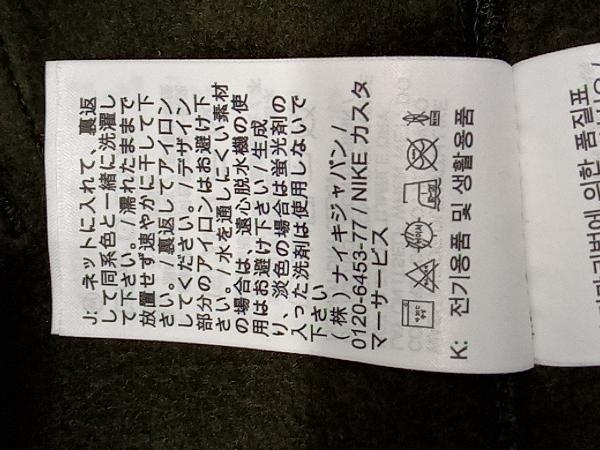 J: ネットに入れて、裏返
して同系色と一緒に洗濯し
て下さい。/濡れたままで
放置せず速やかに干して下
さい。/裏返してアイロン
してください。/デザイン
部分のアイロンはお避け下
さい。/水を通しにくい素材
の場合は、遠心脱水機の使
用はお避け下さい/生成
り、淡色の場合は蛍光剤の
入った洗剤は使用しないで
下さい
(株)ナイキジャパン/
0120-6453-77/NIKE カスタ
マーサービス
K: 전기용품 및 생활용품
에 의한 품질표